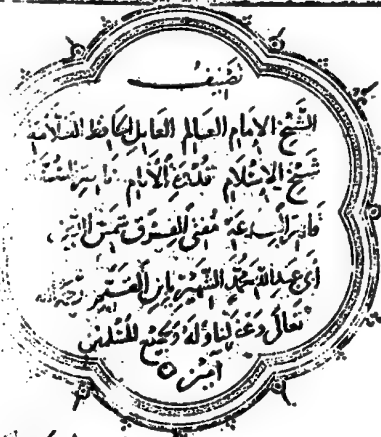 تصنيف
الشيخ الإمام العالم العامل الحافظ العلامة
شيخ الإسلام قدوة الأنام ناصر السنة
قامع البدعة مفتي الفرق شمس الدين
أبي عبد الله محمد الشهير بابن القيم رحمه الله
تعالى وغفر لنا وله ولجميع المسلمين
آمين